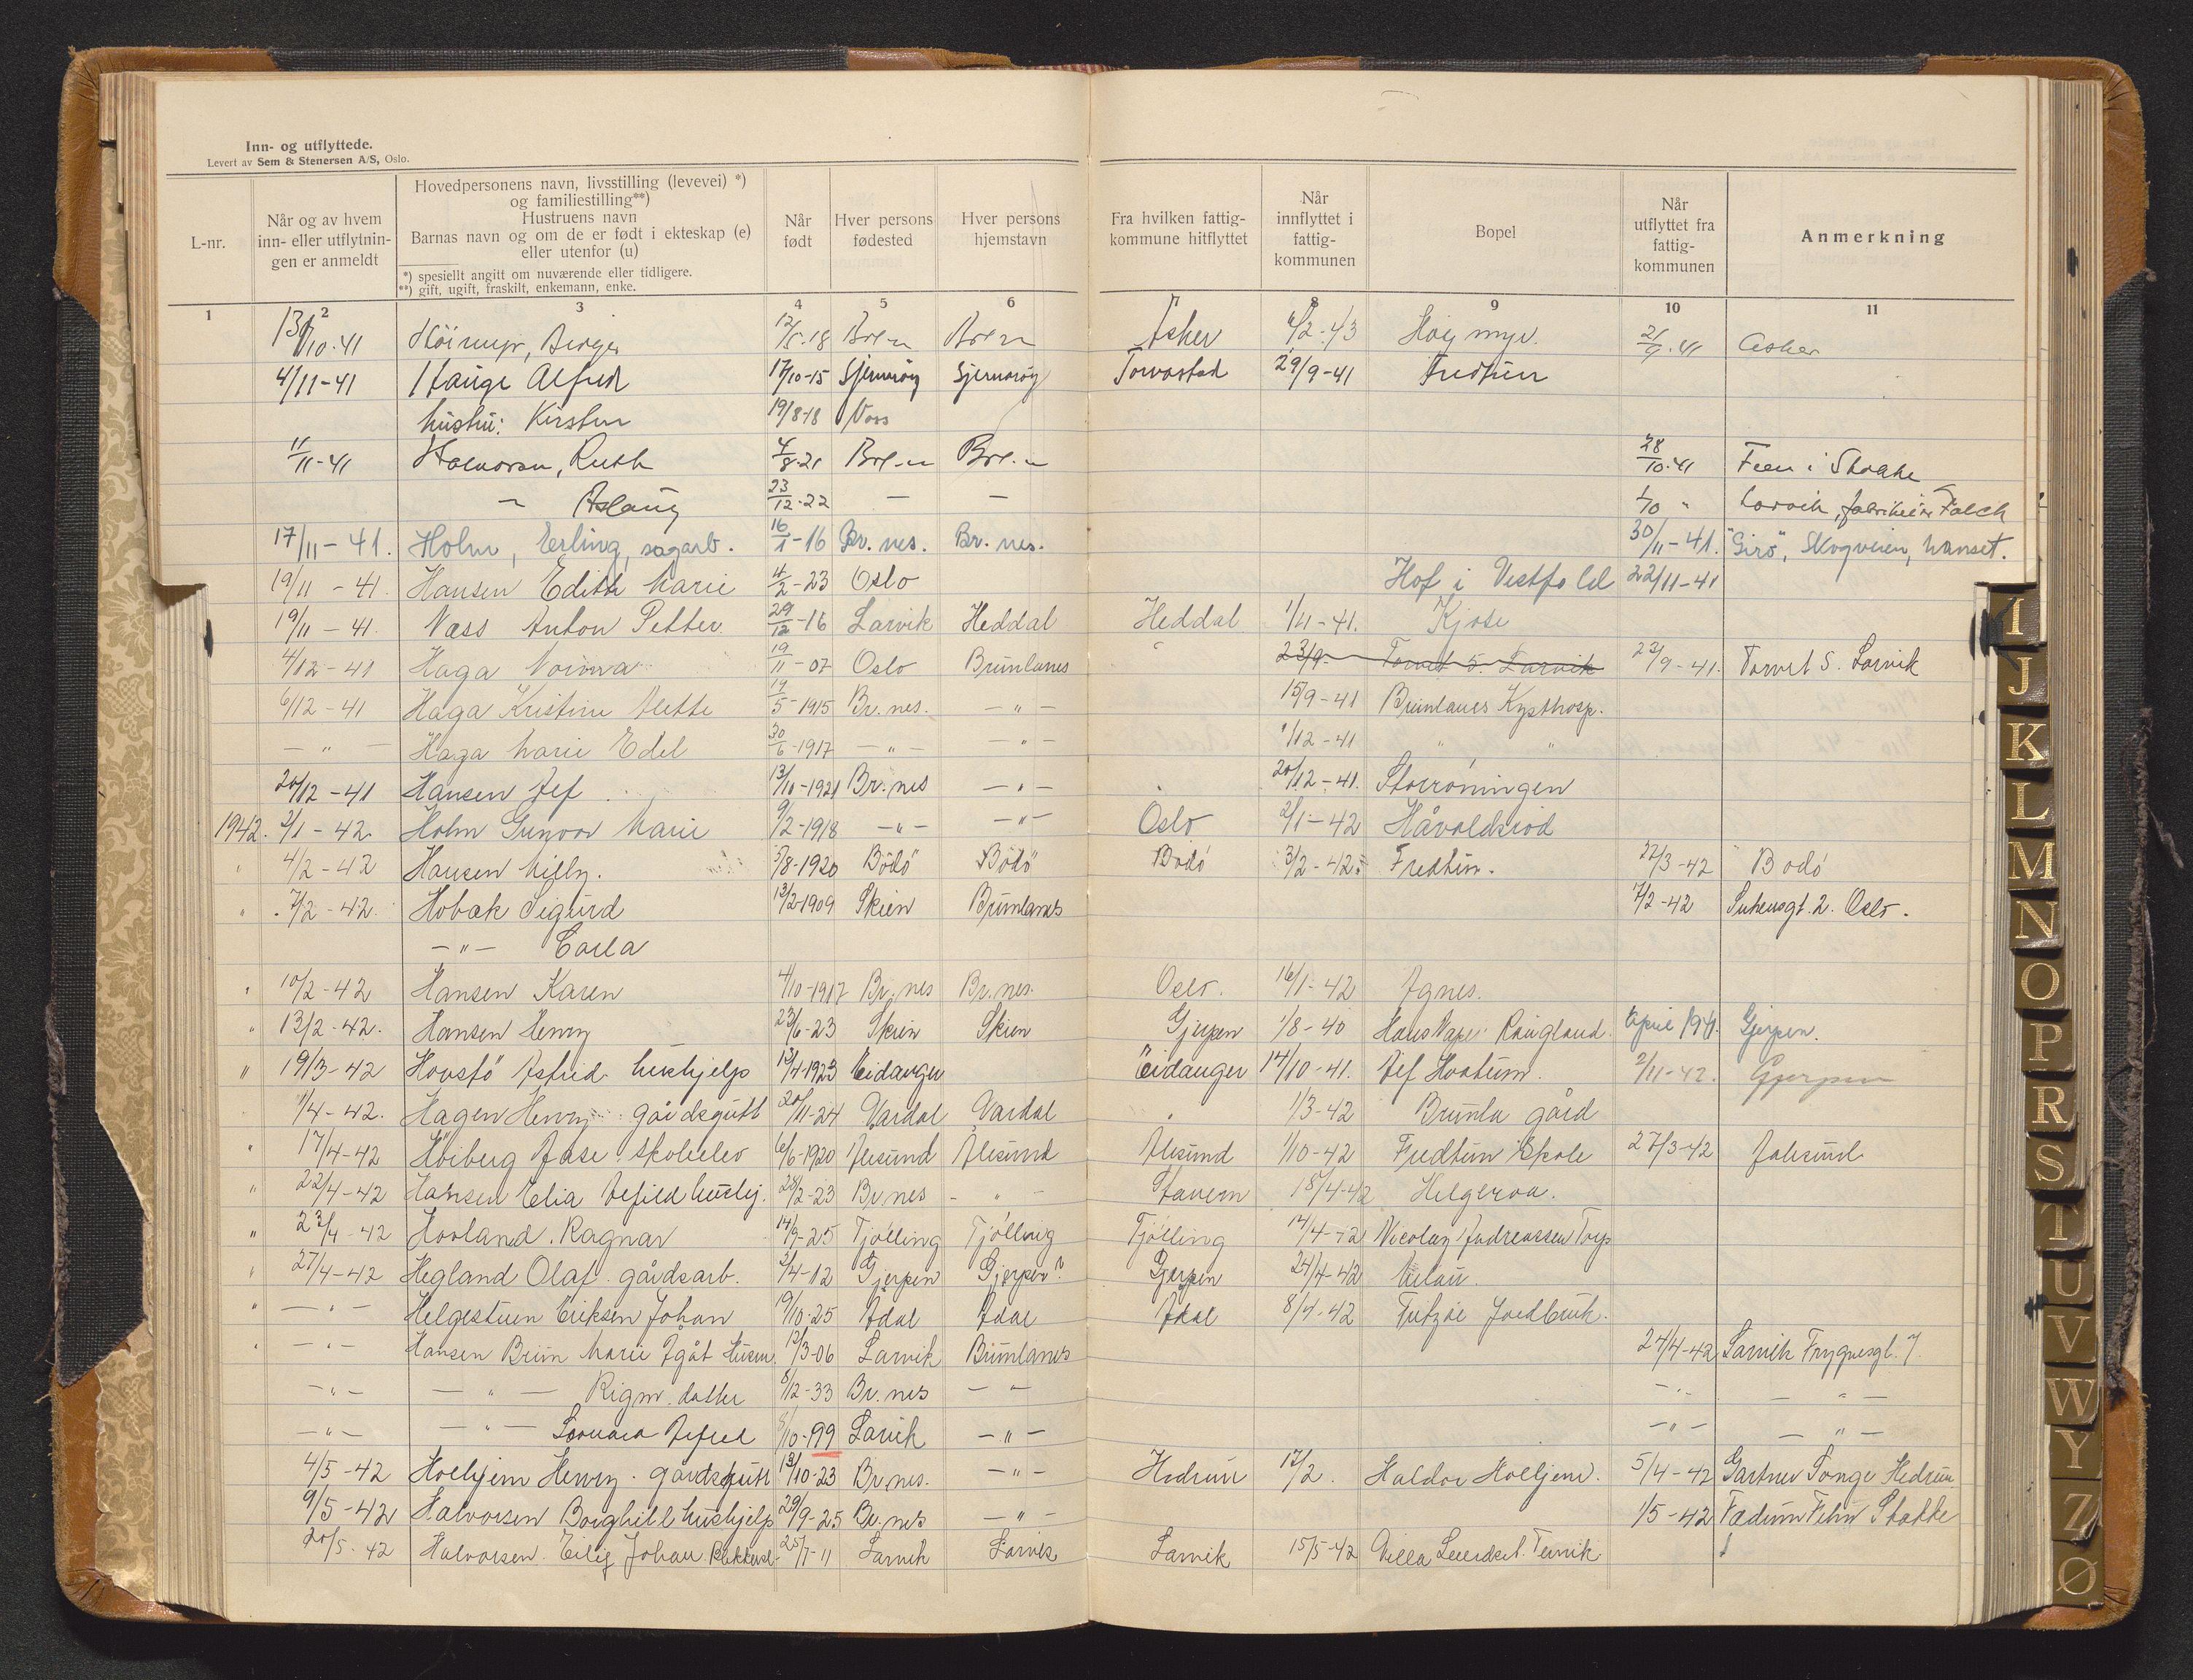 Inn- og utflyttede.
Levert av Sem & Stenersen A/S, Oslo.
L-nr.
Når og av hvem inn- eller utflytnin- gen er anmeldt
Hovedpersonens navn, livsstilling (levevei) *)
og familiestilling**)
Hustruens navn
Barnas navn og om de er født i ekteskap (e)
eller utenfor (u)
*) spesiellt angitt om nuværende eller tidligere.
**) gift, ugift, fraskilt, enkemann, enke.
Når født
Hver persons fødested
Hver persons hjemstavn
Fra hvilken fattig- kommune hitflyttet
Når innflyttet i fattig- kommunen
Bopel
Når utflyttet fra fattig- kommunen
Anmerkning
1 2 3 4 5 6 7 8 9 10 11
13/10-41 Birger Asker Høymyr 21/9-41 Asker
4/11-41 Hauge Alfred 17/10-15 Sjernarøy Sjernarøy Torvastad 29/9-41 Fredtun
hustru: Kirsten 19/8-18 Voss
11/11-41 Halvorsen, Ruth 4/8-21 28/10-41 Feen i Stokke
" Aslaug 23/12-22 — — 1/10 " Larvik, Falch
17/11-41. Holm, Erling, sagarb. 16/1-16 Br. nes. Br. nes. 30/11-41. "Giro", Skogveien, Nanset.
19/11-41 Hansen Edith Marie 4/2-23 Oslo Hof i Vestfold 22/11-41
19/11-41. Næss Anton Petter 29/12-16 Larvik Heddal Heddal 1/11-41. Kjose
4/12-41 Haga Norma 19/11-07 Oslo Brunlanes " 23/9- Torvet 5. Larvik 23/9-41. Torvet 5. Larvik
6/12-41 Haga Kristine Alette 19/5-1915 Br. nes. -"- 15/9-41 Brunlanes Kysthosp.
-"- Haga Marie Edel 30/6-1917 -"- -"- 1/12-41 " "
20/12-41 Hansen Alf 13/10-1921 Br. nes -"- 20/12-41. Storrøningen
1942. 2/1-42. Holm Gunvor Marie 9/2-1918 -"- -"- Oslo 2/1-42 Håvaldsrød
" 4/2-42 Hansen Milly. 5/8-1920 Bödö Bödö Bodö 3/2-42. Fredtun. 22/3-42 Bodö
" 7/2-42. Hobæk Sigurd 12/2-1909 Skien Brunlanes 7/2-42 2. Oslo.
-"- Carla
" 10/2-42 Hansen Karen 4/10-1917 Br. nes Br. nes. Oslo. 16/1-42 Agnes.
" 13/2-42. Hansen Henry 23/6-23 Skien Skien Gjerpen 1/8-40 Raugland. April 1941. Gjerpen.
" 19/3-42 Hovstö Astrid hushjelp 12/4-1923 Eidanger Eidanger 14/10-41. Alf Hvatum. 2/11-42. Gjerpen
1/4-42. Hagen Henry gårdsgutt 20/11-24 Vardal Vardal " 1/3-42 Brunla gård
" 17/4-42 Höiberg Aase skoleelev 6/6-1920 Ålesund Ålesund Ålesund 1/10-42 Fredtun Skole 27/3-42 Aalesund
" 22/4-42 Hansen Elia Alfild hushj. 28/2-23 Br. nes - " - Stavern 18/4-42 Helgeroa.
" 23/4-42 Hovland. Ragnar 14/9-25 Tjölling Tjölling Tjölling 14/4-42 Nicolay Andreassen Torp
" 27/4-42 Hegland Olaf. gårdsarb. 2/4-12 Gjerpen Gjerpen? Gjerpen 24/4-42 Milau.
" -"- Helgestuen Eriksen Johan 19/10-25 Ådal Ådal Ådal 8/4-42 Fritzøe Jordbruk.
" -"- Hansen Brun Marie Ågåt Husm. 12/3-06 Larvik Brunlanes 24/4-42 Larvik Frygnesgt. 7.
-"- -"- Rigm. datter 8/12-33 Br. nes -"- -"- -"-
-"- -"- Alfred 8/10-99 Larvik -"- -"- -"-
4/5-42 Holhjem Henry. gårdsgutt 13/10-23 Br. nes. -"- Hedrum 12/2. Haldor Holhjem. 5/4-42 Gartner Hedrum
9/5-42 Halvorsen Borghild hushjelp 29/9-25 Br. nes -"- 1/5-42 Stokke
20/5-42 Halvorsen Eilif Johan 25/7-11 Larvik Larvik Larvik 15/5-42 Villa
I
J
K
L
M
N
O
P
R
S
T
U
V
W
Y
Z
Ø